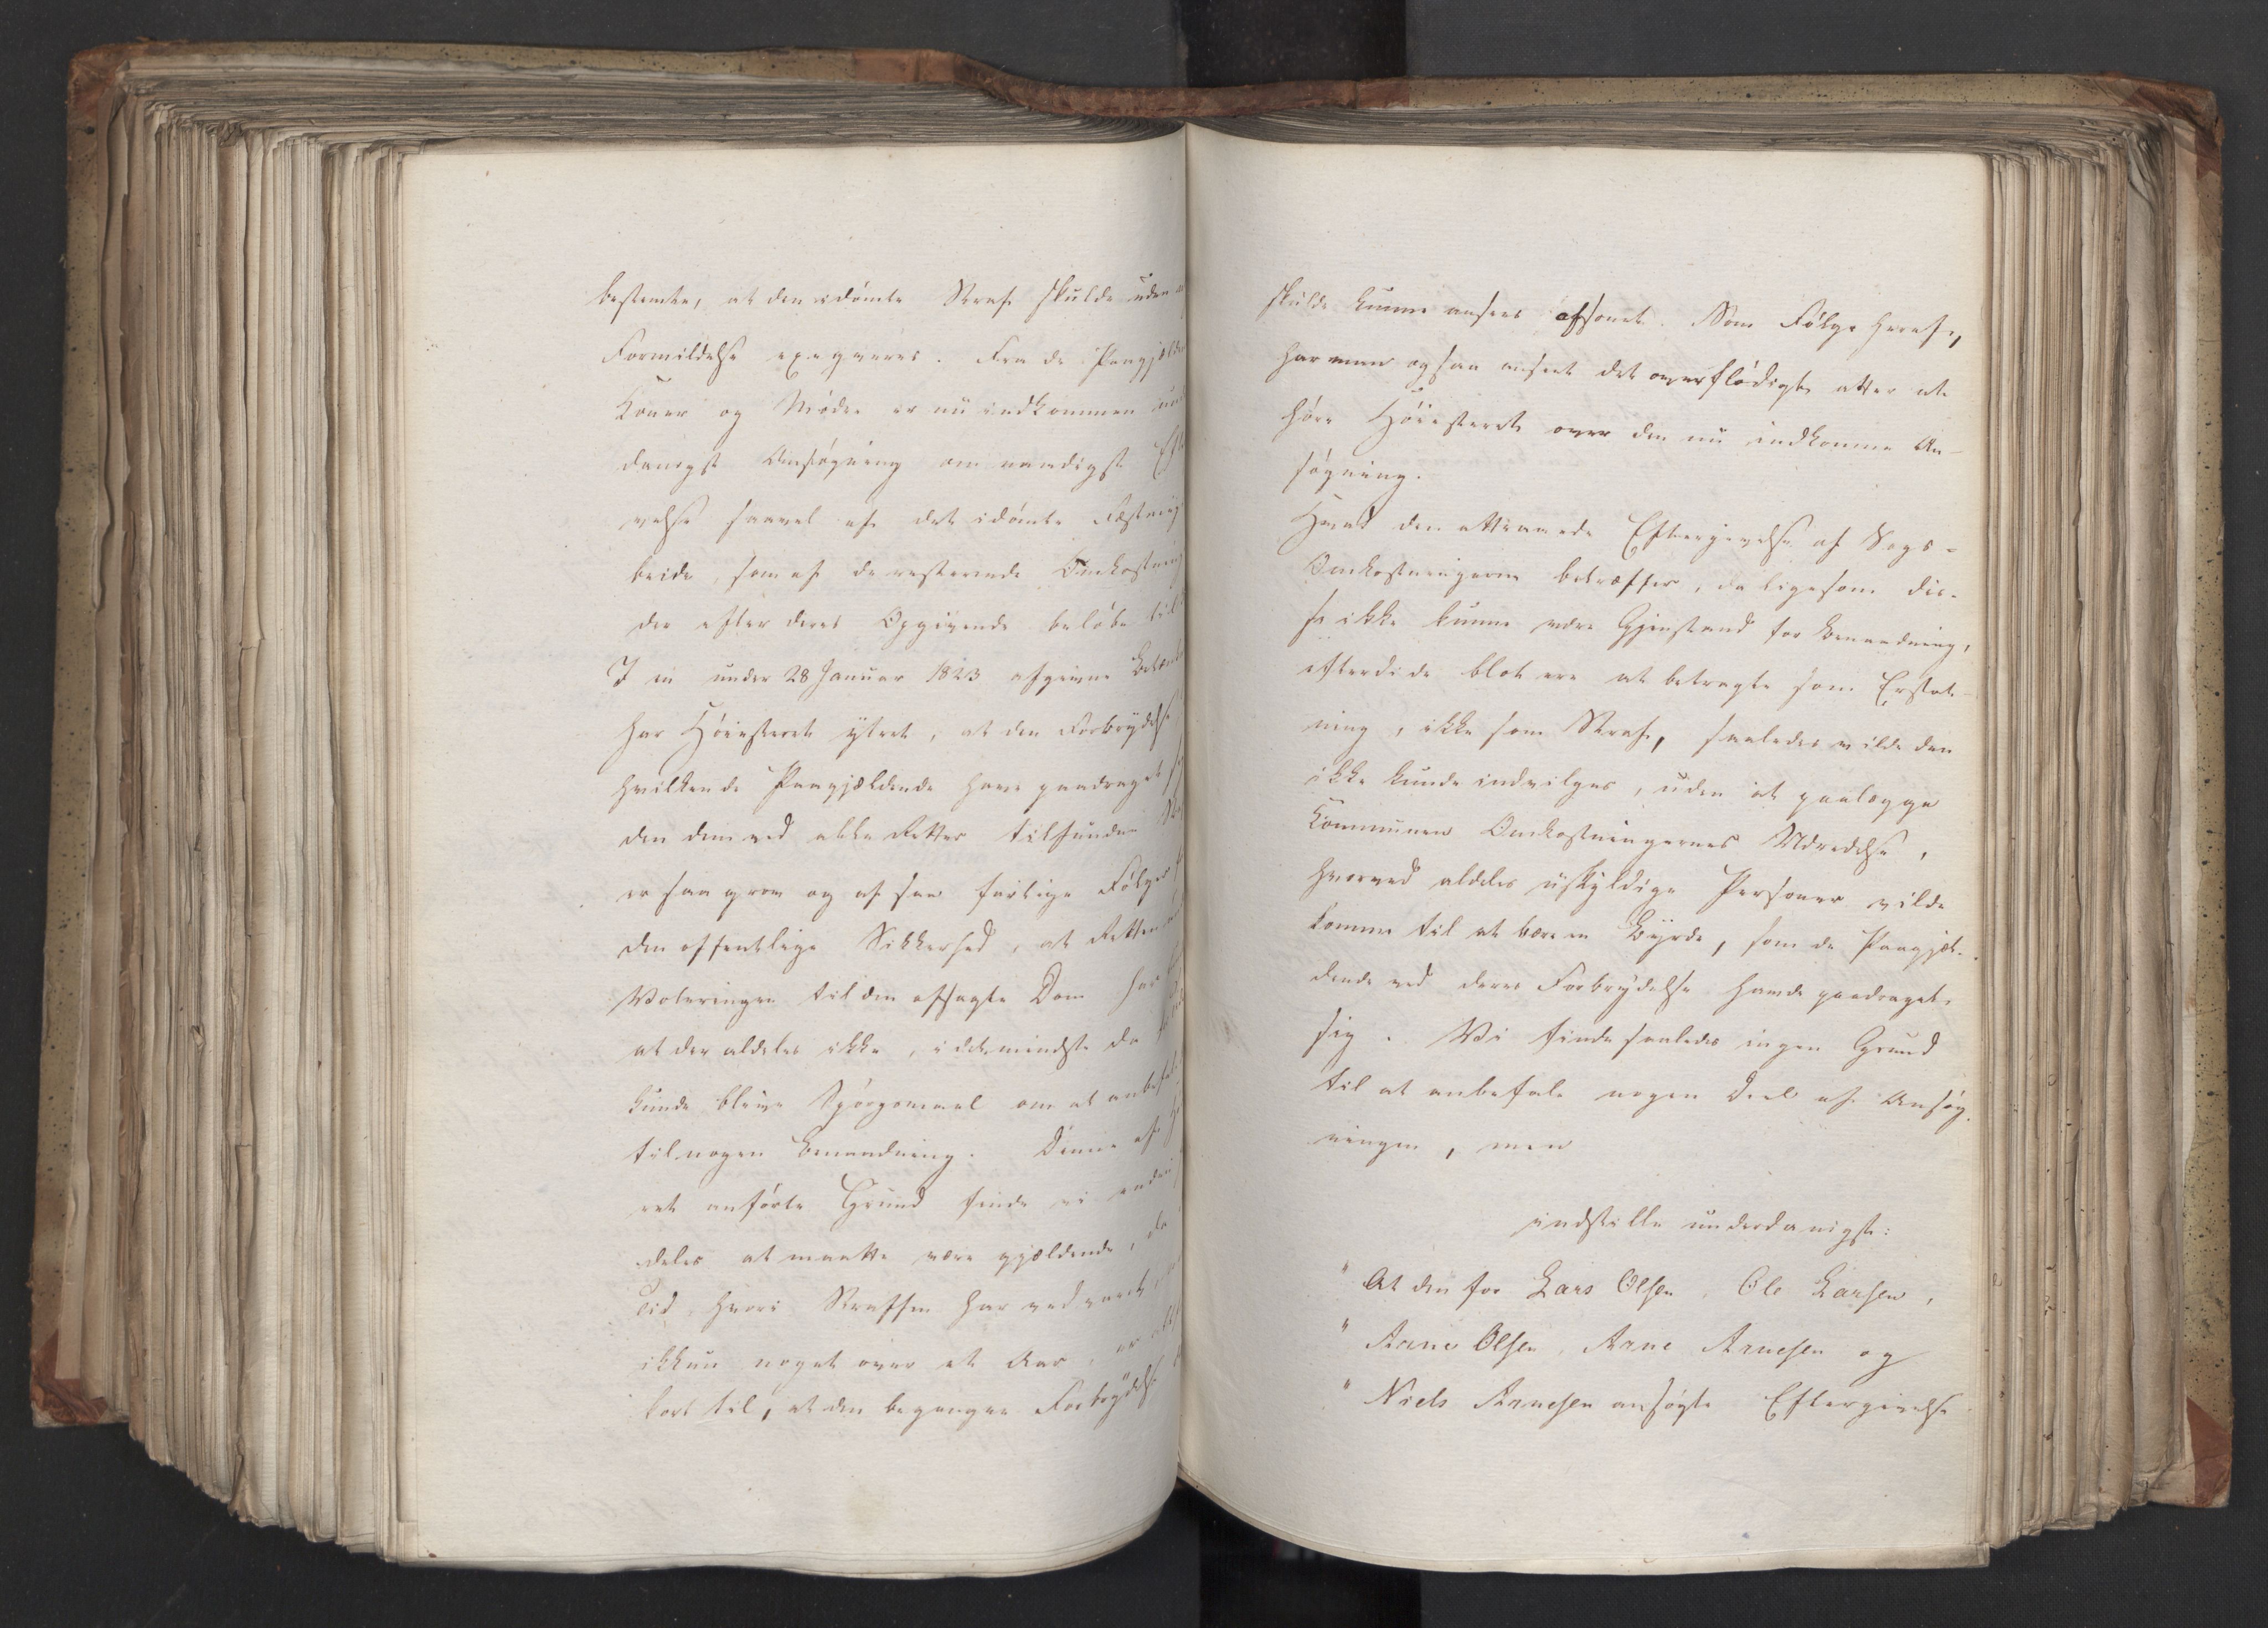 bestemte, at den idömte Straf skulde uden
Formildelse exeqveres. Fra de Paagjælden
Koner og Mödre er nu indkommen und
danigst Ansögning om naadigst Ef
velse saavel af det idömte Fæstnings
beide, som af de resterende Omkostning
der efter deres Opgivende belöbe til
I en under 28 Januar 1823 afgiven Betænk
har Höiesteret yttret, at den Forbrydelse
hvilken de Paagjældende have paadraget si
den dem ved alle Retter tilfundne
er saa grov og af saa farlige Fölger f
den offentlige Sikkerhed, at Retten
Voteringen til den afsagte Dom har
at der aldeles ikke, i detmindste da
kunde blive Spörgsmaal om at anbefal
til nogen Benaadning. Denne af H
ret anförte Grund finde vi endnu
deles at maatte være gjældende, da
Tid, hvori Straffen har vedvaret,
ikkun noget over et Aar, er alt
kort til, at den begangne Forbrydelse
skulde kunne ansees afsonet. Som Fölge heraf,
har man ogsaa anseet det overflödigt atter at
höre Höiesteret over den nu indkomne An-
sögning.
Hvad den attraaede Eftergivelse af Sags-
Omkostningerne betræffer, da ligesom dis-
se ikke kunne være Gjenstand for Benaadning,
efterdi de blot ere at betragte som Erstat-
ning, ikke som Straf, saaledes vilde den
ikke kunde indvilges, uden at paalægge
Kommunen Omkostningernes Udredelse,
hvorved aldeles uskyldige Personer vilde
komme til at bære en Byrde, som de Paagjæl-
dende ved deres Forbrydelse havde paadraget
sig. Vi finde saaledes ingen Grund
til at anbefale nogen Deel af Ansög-
ningen, men
indstille underdanigst:
" At den for Lars Olsen, Ole Larsen,
" Arne Olsen, Arne Arnesen og
" Niels Arnesen ansögte Eftergivelse